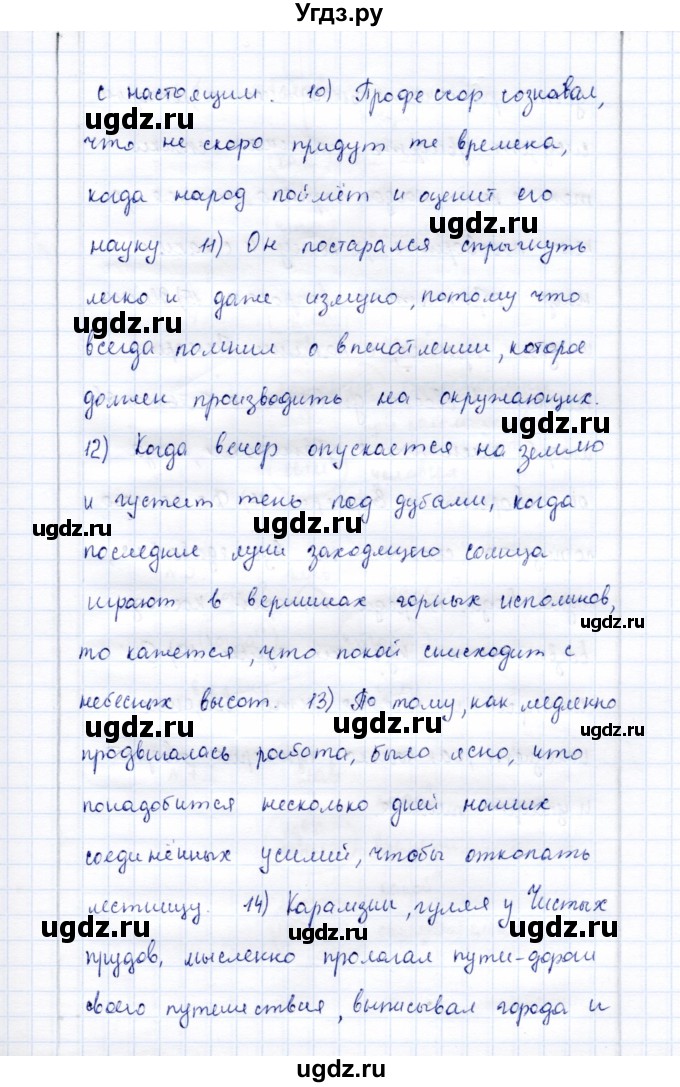 Угдз.ру
с настоящим. 10) Профессор сознавал,
ugdz.ru
что не скоро придут те времена,
когда народ поймёт и оценит его
ugdz.ru
науку. 11) Он постарался спрыгнуть
легко и даже изящно, потому что
ugdz.ru
всегда помнил о впечатлении, которое
должен производить на окружающих.
ugdz.ru
12) Когда вечер опускается на землю
и густеет тень под дубами, когда
ugdz.ru ugdz.ru
последние лучи заходящего солнца
играют в вершинах горных исполинов,
ugdz.ru
то кажется, что покой снисходит с
небесных высот. 13) По тому, как медленно
ugdz.ru ugdz.ru ugdz.ru
продвигалась работа, было ясно, что
понадобится несколько дней наших
соединённых усилий, чтобы откопать
ugdz.ru
лестницу. 14) Карамзин, гуляя у Чистых
ugdz.ru ugdz.ru
прудов, мысленно пролагал пути-дороги
своего путешествия, выписывал города и
ugdz.ru